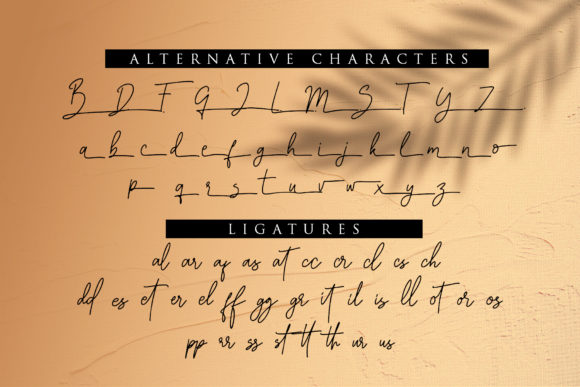 ALTERNATIVE CHARACTERS
B D F G I L M S T Y Z
a b c d e f g h i j k l m n o
p q r s t u v w x y z
LIGATURES
al ar as at cc cr cl cs ch
dd es et er el ff gg gr it il is ll ot or os
pp rr ss st tt th ur us